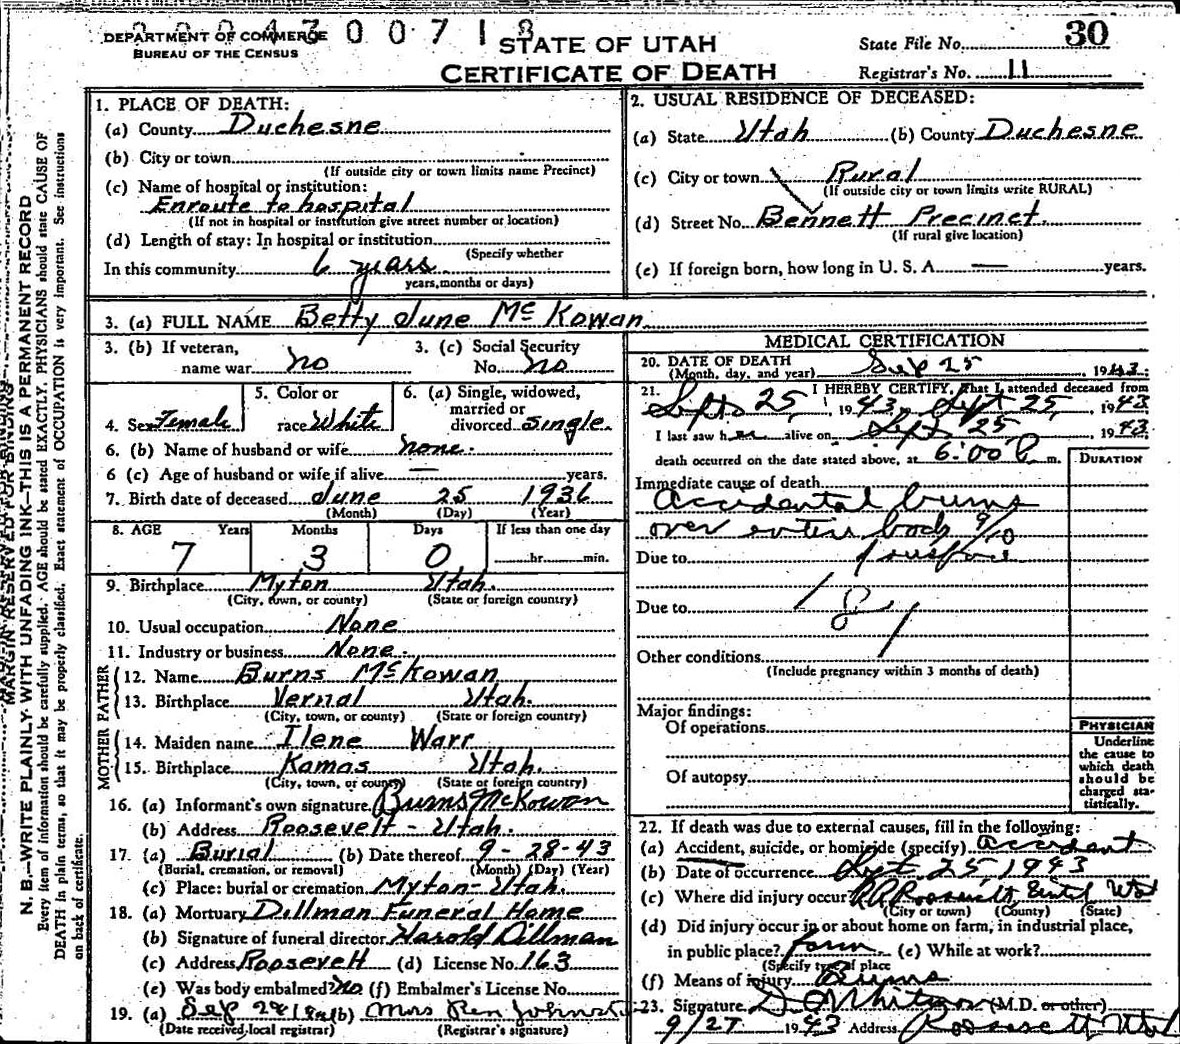 DEPARTMENT OF COMMERCE
BUREAU OF THE CENSUS
STATE OF UTAH
CERTIFICATE OF DEATH
State File No. 30
Registrar's No. 11
N. B.—WRITE PLAINLY WITH UNFADING INK—THIS IS A PERMANENT RECORD
MARGIN RESERVED FOR BINDING
Every item of information should be carefully supplied. AGE should be stated EXACTLY. PHYSICIANS should state CAUSE OF
DEATH in plain terms, so that it may be properly classified. Exact statement of OCCUPATION is very important. See instructions
on back of certificate.
1. PLACE OF DEATH:
(a) County Duchesne
(b) City or town
(If outside city or town limits name Precinct)
(c) Name of hospital or institution:
Enroute to hospital
(If not in hospital or institution give street number or location)
(d) Length of stay: In hospital or institution
(Specify whether
In this community 6 years
years, months or days)
2. USUAL RESIDENCE OF DECEASED:
(a) State Utah (b) County Duchesne
(c) City or town Rural
(If outside city or town limits write RURAL)
(d) Street No. Bennett Precinct.
(If rural give location)
(e) If foreign born, how long in U. S. A. — years.
3. (a) FULL NAME Betty June McKowan
3. (b) If veteran, name war no
3. (c) Social Security No. no
4. Sex Female
5. Color or race White
6. (a) Single, widowed, married or divorced single.
6. (b) Name of husband or wife none.
6 (c) Age of husband or wife if alive — years.
7. Birth date of deceased June 25 1936
(Month) (Day) (Year)
8. AGE Years Months Days If less than one day
7 3 0 hr. min.
9. Birthplace Myton Utah.
(City, town, or county) (State or foreign country)
10. Usual occupation None
11. Industry or business None.
FATHER
12. Name Burns McKowan
13. Birthplace Vernal Utah.
(City, town, or county) (State or foreign country)
MOTHER
14. Maiden name Ilene Warr
15. Birthplace Kamas Utah.
(City, town, or county) (State or foreign country)
16. (a) Informant's own signature Burns McKowan
(b) Address Roosevelt - Utah.
17. (a) Burial (b) Date thereof 9-28-43
(Burial, cremation, or removal) (Month) (Day) (Year)
(c) Place: burial or cremation Myton - Utah.
18. (a) Mortuary Dillman Funeral Home
(b) Signature of funeral director Harold Dillman
(c) Address Roosevelt (d) License No. 163
(e) Was body embalmed? No (f) Embalmer's License No.
19. (a) Sep (b) Mrs Ren
(Date received, local registrar) (Registrar's signature)
MEDICAL CERTIFICATION
20. DATE OF DEATH
(Month, day, and year) Sep 25 1943.
21. I HEREBY CERTIFY, That I attended deceased from
Sept 25, 1943, Sept 25, 1943
I last saw her alive on Sept. 25 1943
death occurred on the date stated above, at 6:00 P. m.
DURATION
Immediate cause of death
Accidental burns
over entire body 9/10
Due to
Due to
181
Other conditions
(Include pregnancy within 3 months of death)
Major findings:
Of operations
Of autopsy
PHYSICIAN
Underline
the cause to
which death
should be
charged sta-
tistically.
22. If death was due to external causes, fill in the following:
(a) Accident, suicide, or homicide (specify) accident
(b) Date of occurrence Sept 25, 1943
(c) Where did injury occur Roosevelt,
(City or town) (County) (State)
(d) Did injury occur in or about home on farm, in industrial place,
in public place? farm (e) While at work?
(Specify type of place
(f) Means of injury Burns
23. Signature (M.D. or other)
9/27 1943 Address Roosevelt, Utah